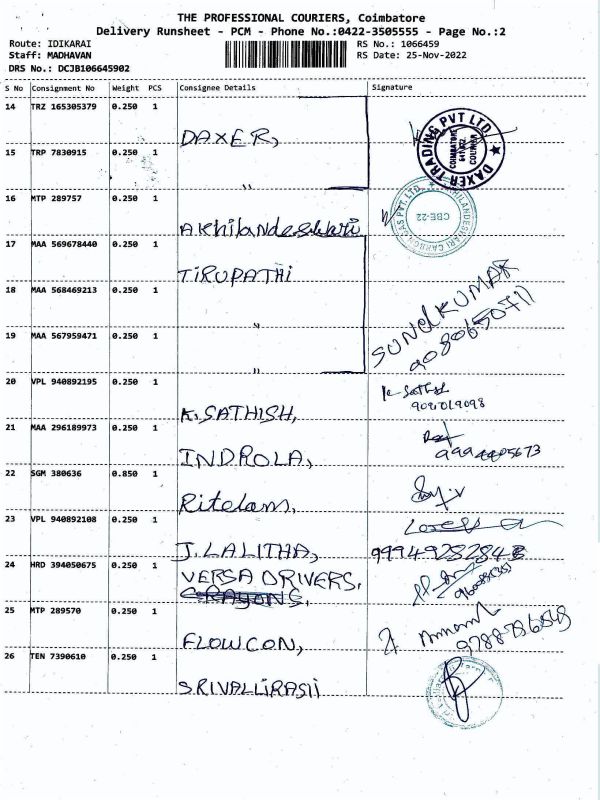 THE PROFESSIONAL COURIERS, Coimbatore
Delivery Runsheet - PCM - Phone No.:0422-3505555 - Page No.:2
Route: IDIKARAI
RS No.: 1066459
Staff: MADHAVAN
RS Date: 25-Nov-2022
DRS No.: DCJB106645902
S No Consignment No Weight PCS Consignee Details Signature
14 TRZ 165305379 0.250 1
DAXER,
DAXER TRADING PVT LTD. COIMBATORE 641 022.
15 TRP 7830915 0.250 1
,,
16 MTP 289757 0.250 1
Akhilandeswari
CBE-22
17 MAA 569678440 0.250 1
TIRUPATHI
18 MAA 568469213 0.250 1
,,
SUNdKUMAR
19 MAA 567959471 0.250 1
,,
9080650711
20 VPL 940892195 0.250 1
K.SATHISH,
K Sathish
21 MAA 296189973 0.250 1
INDROLA,
22 SGM 380636 0.850 1
Ritelam,
23 VPL 940892108 0.250 1
J.LALITHA,
24 HRD 394050675 0.250 1
VERSA DRIVERS,
CRAYONS,
25 MTP 289570 0.250 1
FLOWCON,
26 TEN 7390610 0.250 1
SRIVALLIRASII